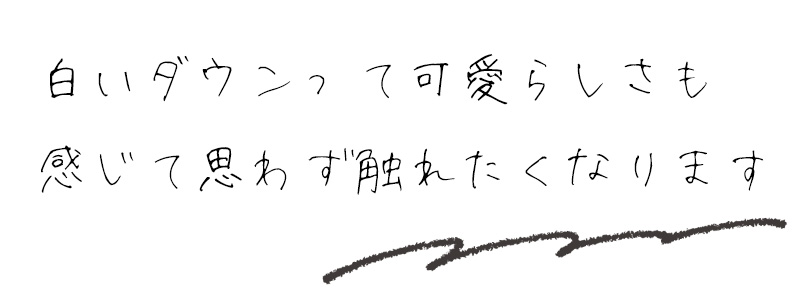 白いダウンって可愛らしさも
感じて思わず触れたくなります